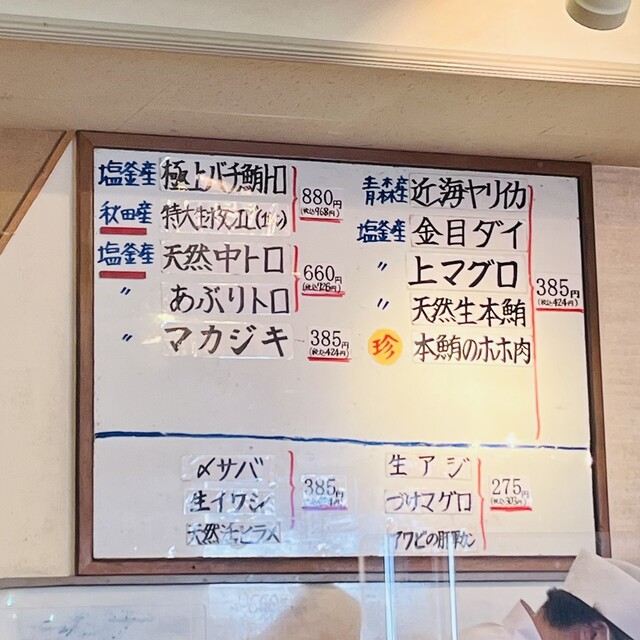 塩釜産 極上バチ鮪トロ
秋田産 特大
880円
(税込968円)
塩釜産 天然中トロ
〃 あぶりトロ
660円
(税込726円)
〃 マカジキ 385円
(税込424円)
青森産 近海ヤリイカ
塩釜産 金目ダイ
〃 上マグロ
〃 天然生本鮪
珍 本鮪のホホ肉
385円
(税込424円)
〆サバ
生イワシ
天然活ヒラメ
385円
生アジ
づけマグロ
アワビの肝軍カン
275円
(税込303円)